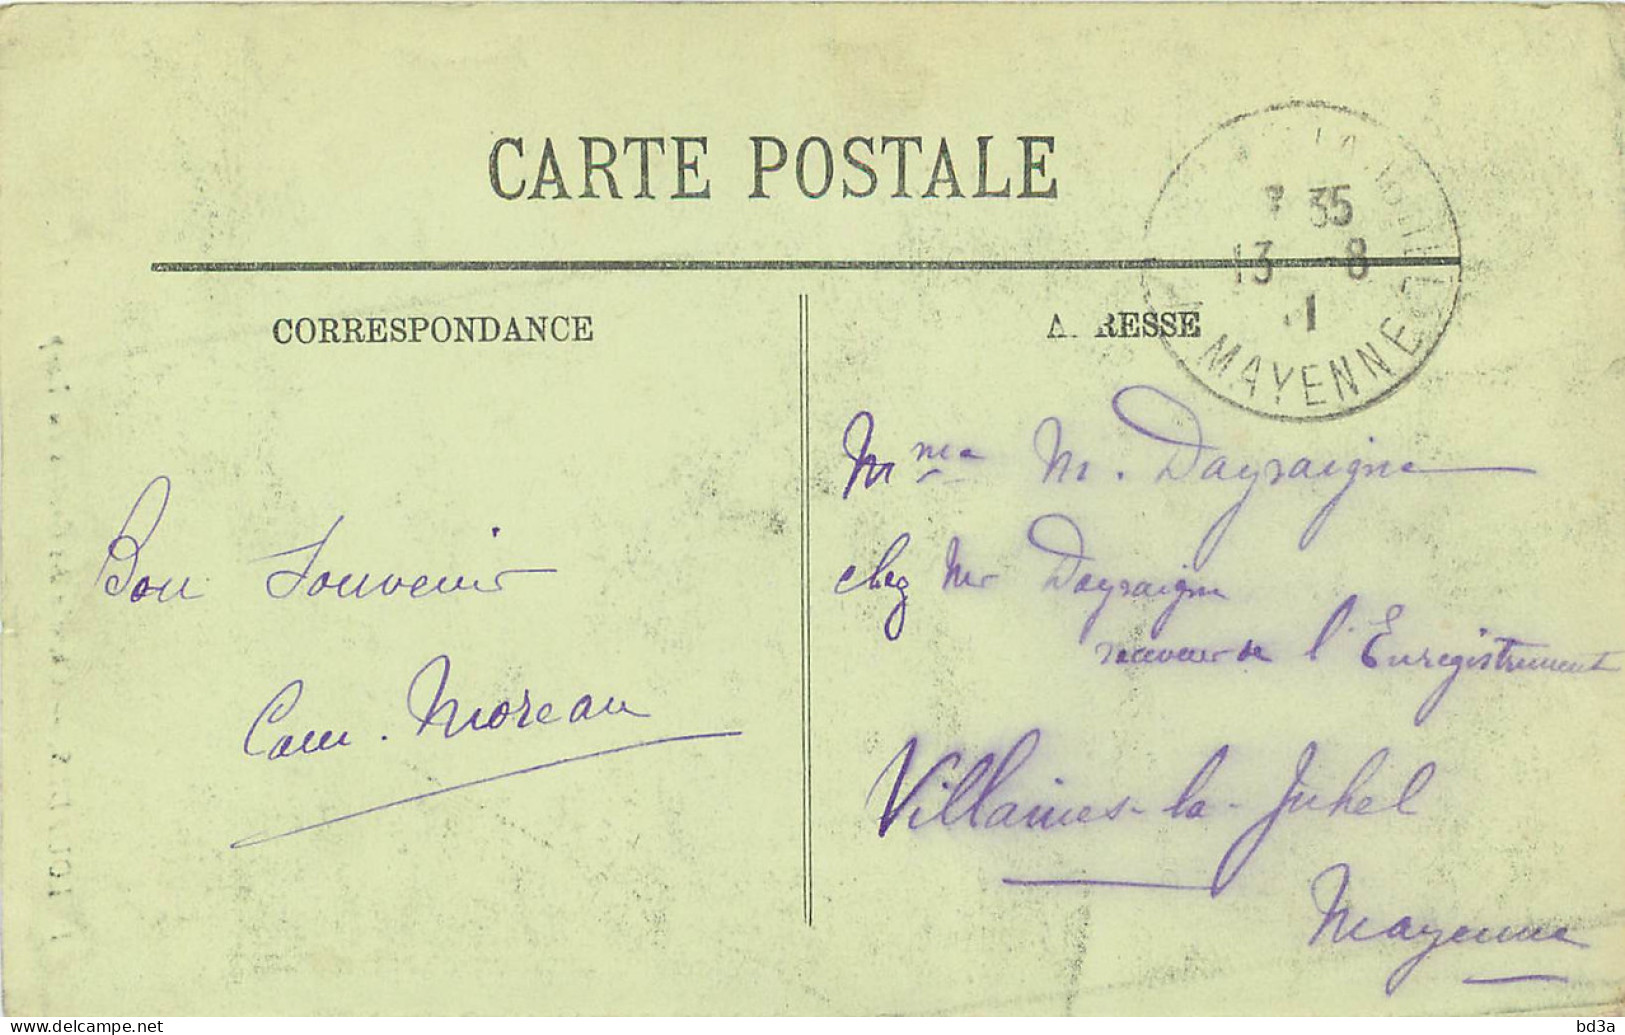 CARTE POSTALE
35
13 8
1
MAYENNE
CORRESPONDANCE
Bon Souvenir
Cam. Moreau
Mme M. Dayraigne
chez Mr Dayraigne
receveur de l'Enregistrement
Villaines-la-Juhel
Mayenne
delcampe.net
bd3a